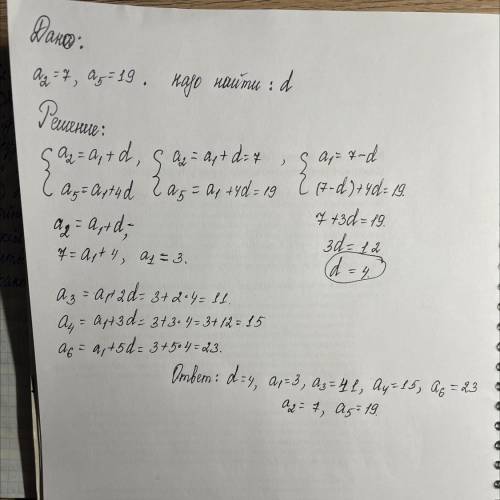 Дано:
a₂=7, a₅=19. надо найти: d
Решение:
{ a₂=a₁+d, { a₂=a₁+d=7 , { a₁=7-d
a₅=a₁+4d a₅=a₁+4d=19 (7-d)+4d=19.
a₂=a₁+d; 7+3d=19.
7=a₁+4, a₁=3. 3d=12
d=4
a₃=a₁+2d=3+2·4=11.
a₄=a₁+3d=3+3·4=3+12=15
a₆=a₁+5d=3+5·4=23.
Ответ: d=4, a₁=3, a₃=11, a₄=15, a₆=23
a₂=7, a₅=19.